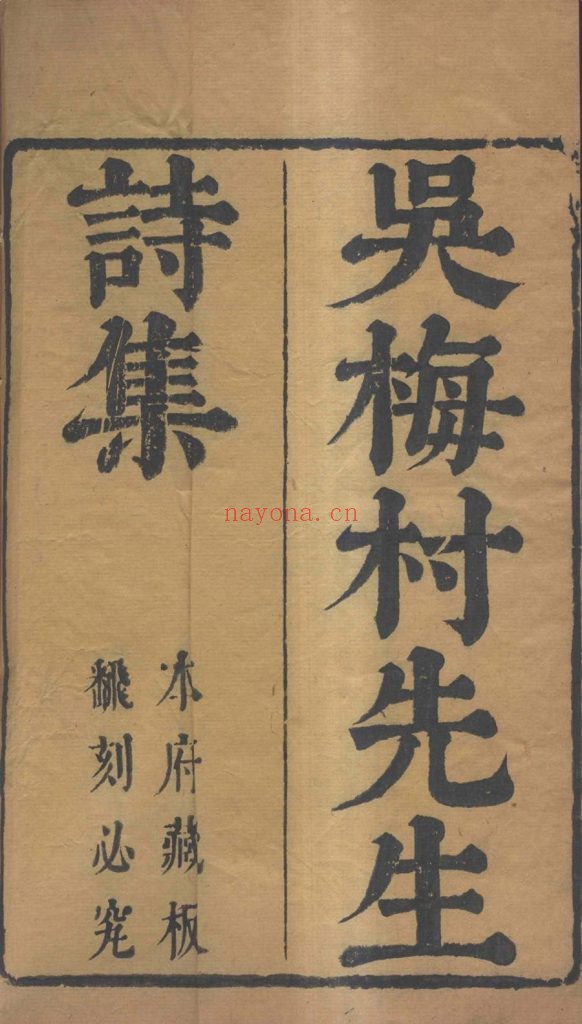 吳梅村先生
詩集
本府藏板
翻刻必究
nayona.cn